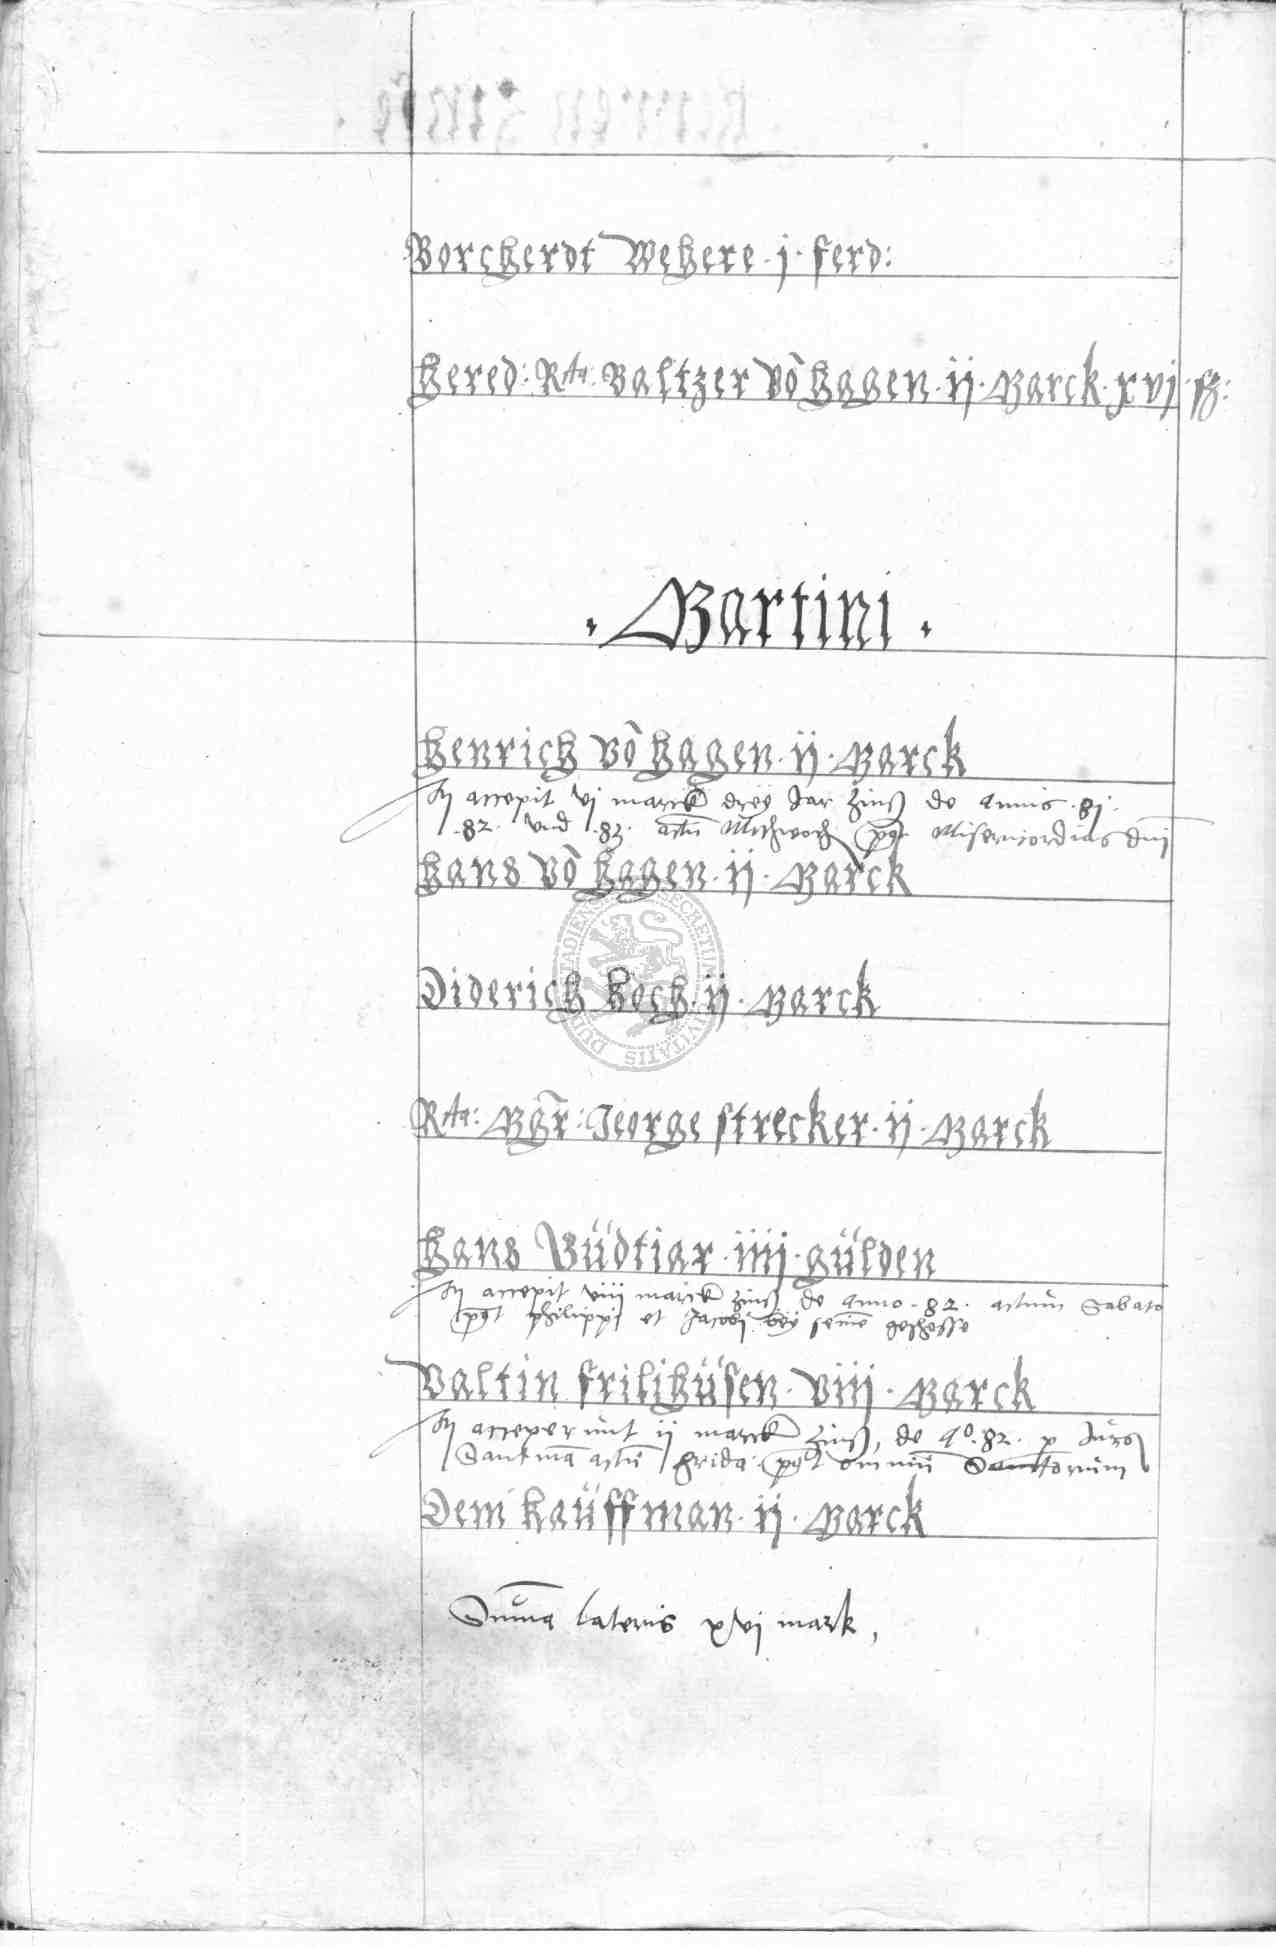 Borcherdt Wehere · j · ferd:
Hered: Rta: Baltzer vō Hagen · ij · Marck · xvj · ß:
· Martini ·
Henrich vō Hagen · ij · Marck
accepit vj marck dreÿ Jar Zinß de annis · 81 ·
· 82 · vnd · 83 · actū Mitzwoch pt Misericordias dni
Hans vō Hagen · ij · Marck
Diderich Koch · ij · Marck
Rta: Mgr̄: Jeorge Strecker · ij · Marck
Hans Büdtiar · iiij · gülden
accepit viii marck Zinß de anno · 82 · actum Sabato
pt philippi et Jacobi beÿ seinē geschosse
Valtin frilihüsen · viij · Marck
acceperunt ij marck Zinß, de ao · 82 · p
actū frida pt omniū Sanctorum
Dem Kauffman · ij · Marck
Sūma lateris xvj mark,
SECRETUM CIVITATIS DUD TADIENS